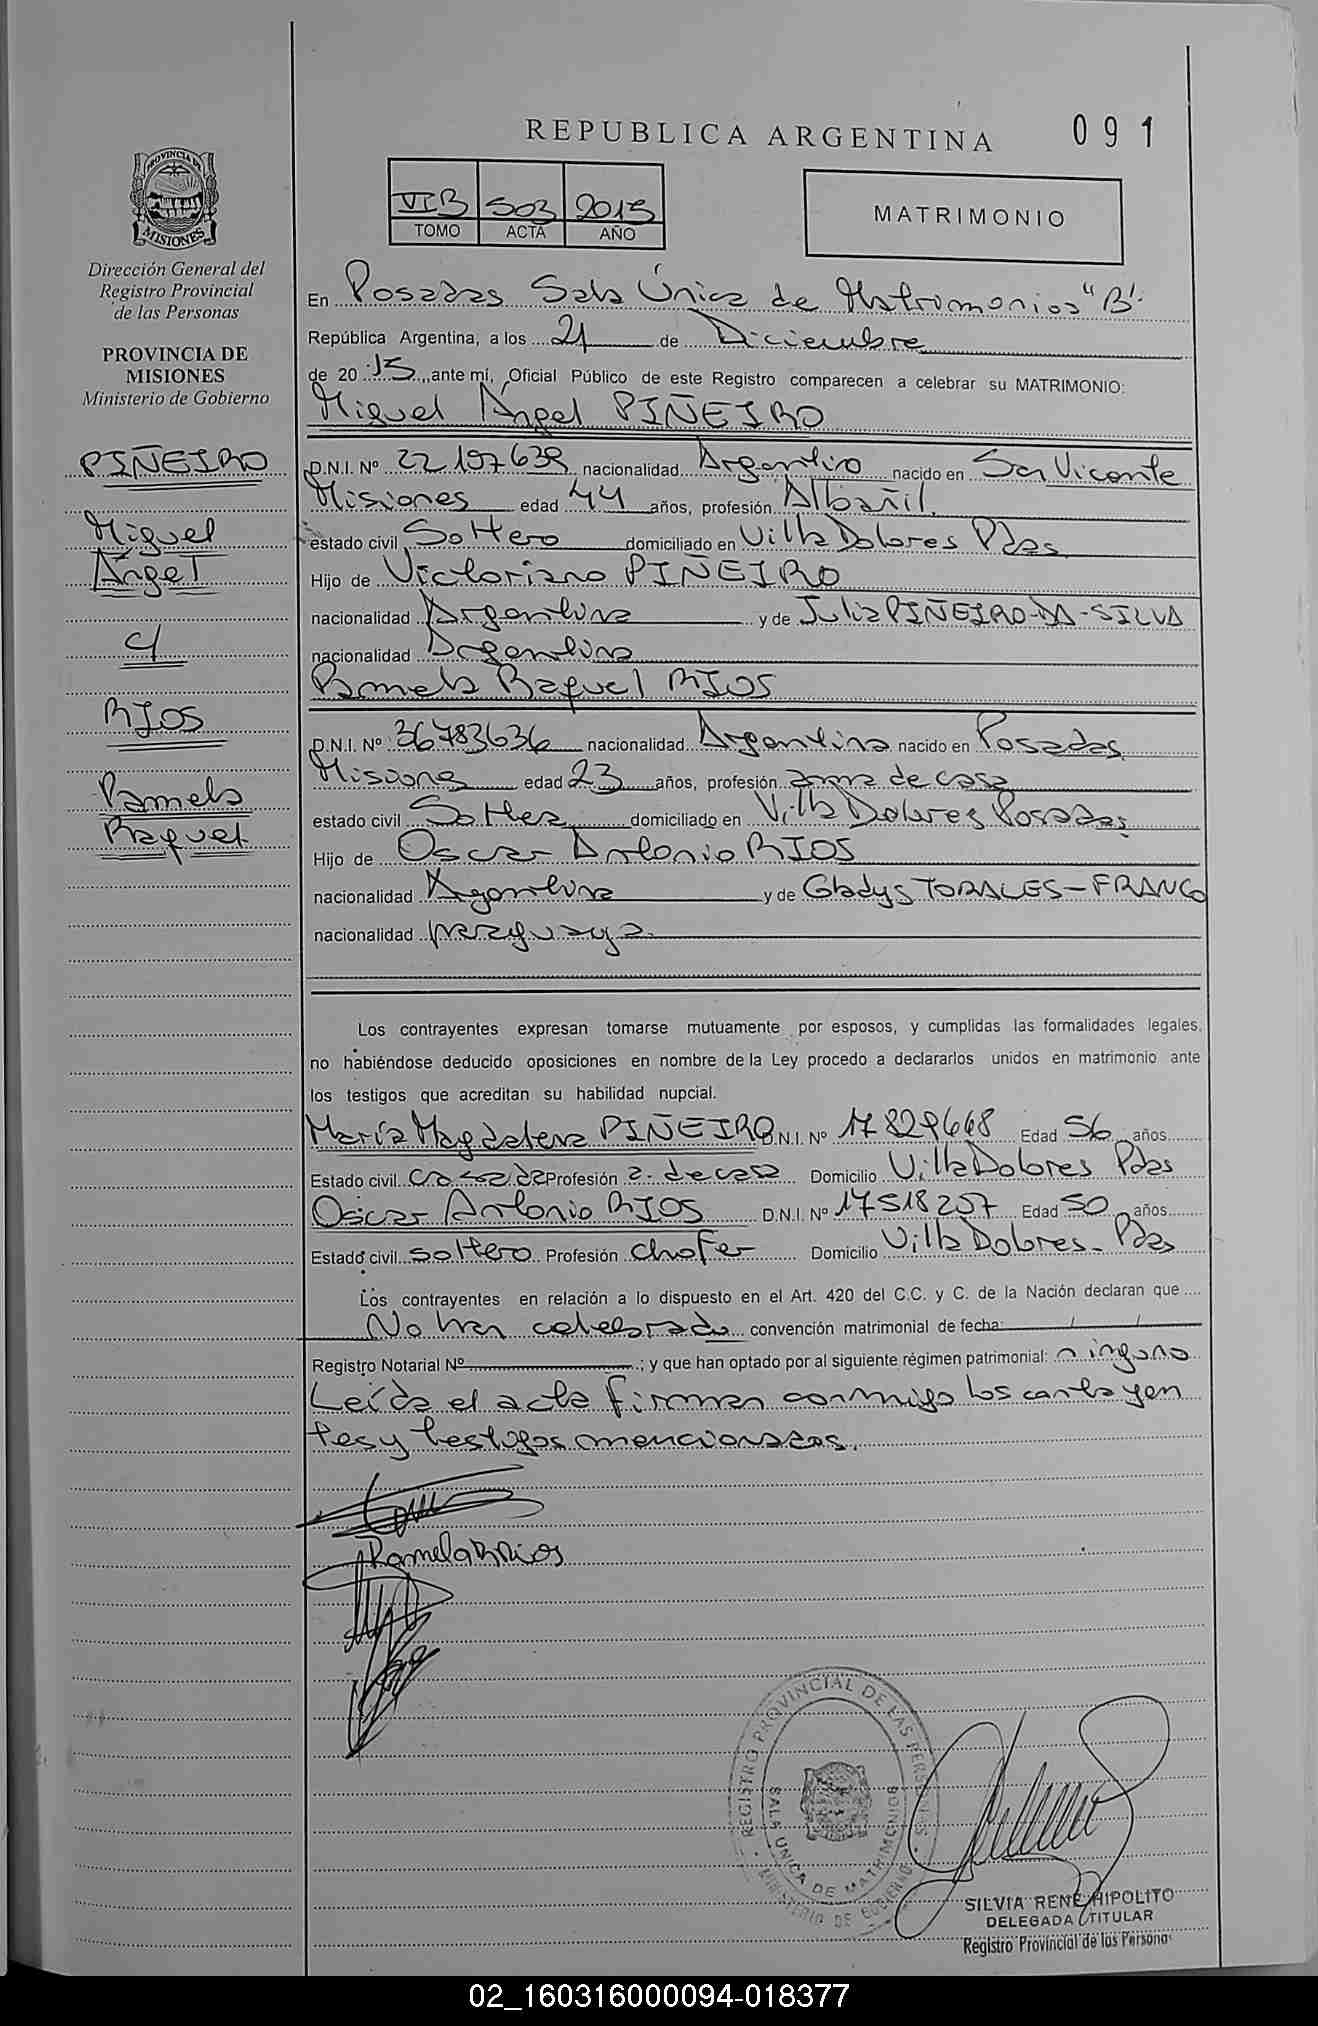 REPUBLICA ARGENTINA 091
VI B 503 2015
TOMO ACTA AÑO
MATRIMONIO
PROVINCIA DE
MISIONES
Dirección General del
Registro Provincial
de las Personas
PROVINCIA DE
MISIONES
Ministerio de Gobierno
PIÑEIRO
Miguel
Ángel
c/
RIOS
Pamela
Raquel
En Posadas Sala Única de Matrimonios "B".
República Argentina, a los 21 de Diciembre
de 20 15, ante mí, Oficial Público de este Registro comparecen a celebrar su MATRIMONIO:
Miguel Ángel PIÑEIRO
D.N.I. Nº 22197639 nacionalidad Argentino nacido en San Vicente
Misiones edad 44 años, profesión Albañil.
estado civil Soltero domiciliado en Villa Dolores Pdas
Hijo de Victoriano PIÑEIRO
nacionalidad Argentina y de Julia PIÑEIRO-DA-SILVA
nacionalidad Argentina
Pamela Raquel RIOS
D.N.I. Nº 36783636 nacionalidad Argentina nacido en Posadas
Misiones edad 23 años, profesión ama de casa
estado civil Soltera domiciliado en Villa Dolores Posadas
Hijo de Oscar Antonio RIOS
nacionalidad Argentina y de Gladys TORALES-FRANCO
nacionalidad paraguaya.
Los contrayentes expresan tomarse mutuamente por esposos, y cumplidas las formalidades legales,
no habiéndose deducido oposiciones en nombre de la Ley procedo a declararlos unidos en matrimonio ante
los testigos que acreditan su habilidad nupcial.
María Magdalena PIÑEIRO D.N.I. Nº 17829668 Edad 56 años
Estado civil casada Profesión a. de casa Domicilio Villa Dolores Pdas
Oscar Antonio RIOS D.N.I. Nº 17518257 Edad 50 años
Estado civil soltero Profesión chofer Domicilio Villa Dolores- Pdas
Los contrayentes en relación a lo dispuesto en el Art. 420 del C.C. y C. de la Nación declaran que
No han celebrado convención matrimonial de fecha: / /
Registro Notarial Nº ; y que han optado por al siguiente régimen patrimonial: ninguno
Leída el acta firman conmigo los contrayen
tes y testigos mencionados.
Pamela R Rios
REGISTRO PROVINCIAL DE LAS PERSONAS
SALA UNICA DE MATRIMONIOS
MINISTERIO DE GOBIERNO
SILVIA RENE HIPOLITO
DELEGADA TITULAR
Registro Provincial de las Persona
02_160316000094-018377